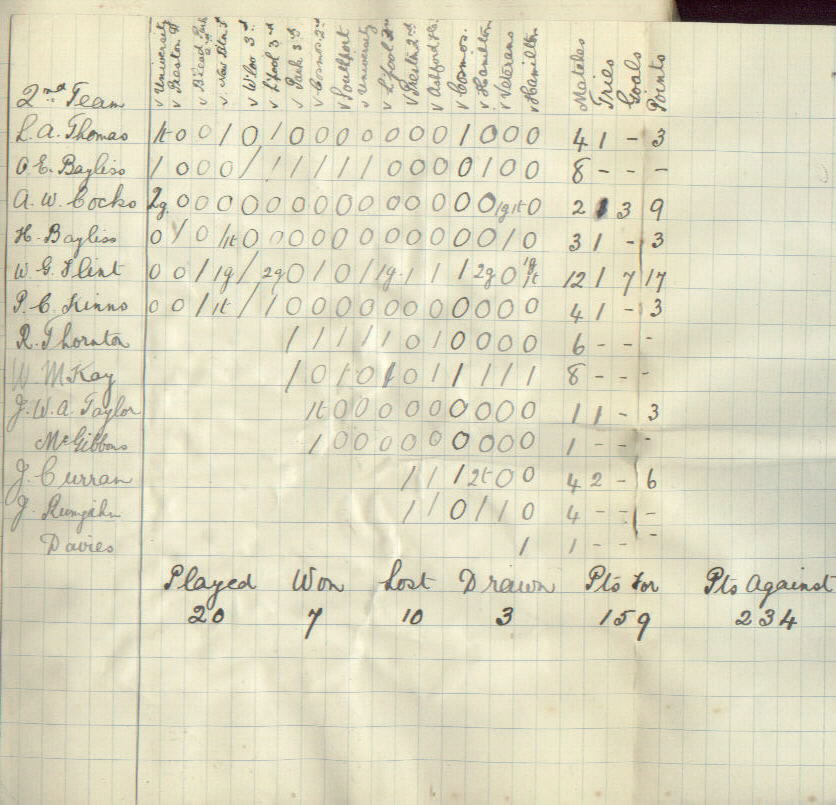 2nd Team v University v Preston v B'head Park v New Btn 3rd v Wilm 3rd v L'pool 3rd v Park 3rd v Cosmos 2nd v Southport v University v L'pool v Preston 2nd v Ashford Ho. v Cosmos. v Hamilton v Veterans v Hamilton Matches Tries Goals Points
L. A. Thomas 1t 0 0 1 0 1 0 0 0 0 0 0 0 1 0 0 0 4 1 - 3
O. E. Bayliss 1 0 0 0 1 1 1 1 1 1 0 0 0 0 1 0 0 8 - - -
A. W. Cocks 2g. 0 0 0 0 0 0 0 0 0 0 0 0 0 0 1g 1t 0 2 1 3 9
H. Bayliss 0 1 0 1t 0 0 0 0 0 0 0 0 0 0 0 1 0 3 1 - 3
W. G. Flint 0 0 1 1g 1 2g 0 1 0 1 1g 1 1 1 2g 0 1g 1t 12 1 7 17
P. C. Kinno 0 0 1 1t 1 1 0 0 0 0 0 0 0 0 0 0 0 4 1 - 3
R. Thornton 1 1 1 1 1 0 1 0 0 0 0 6 - - -
W. McKay 1 0 1 0 1 0 1 1 1 1 1 8 - - -
J. W. A. Taylor 1t 0 0 0 0 0 0 0 0 0 1 1 - 3
McGibbons 1 0 0 0 0 0 0 0 0 0 1 - - -
J. Curran 1 1 1 2t 0 0 4 2 - 6
J. 1 1 0 1 1 0 4 - - -
Davies 1 1 - - -
Played Won Lost Drawn Pts For Pts Against
20 7 10 3 159 234